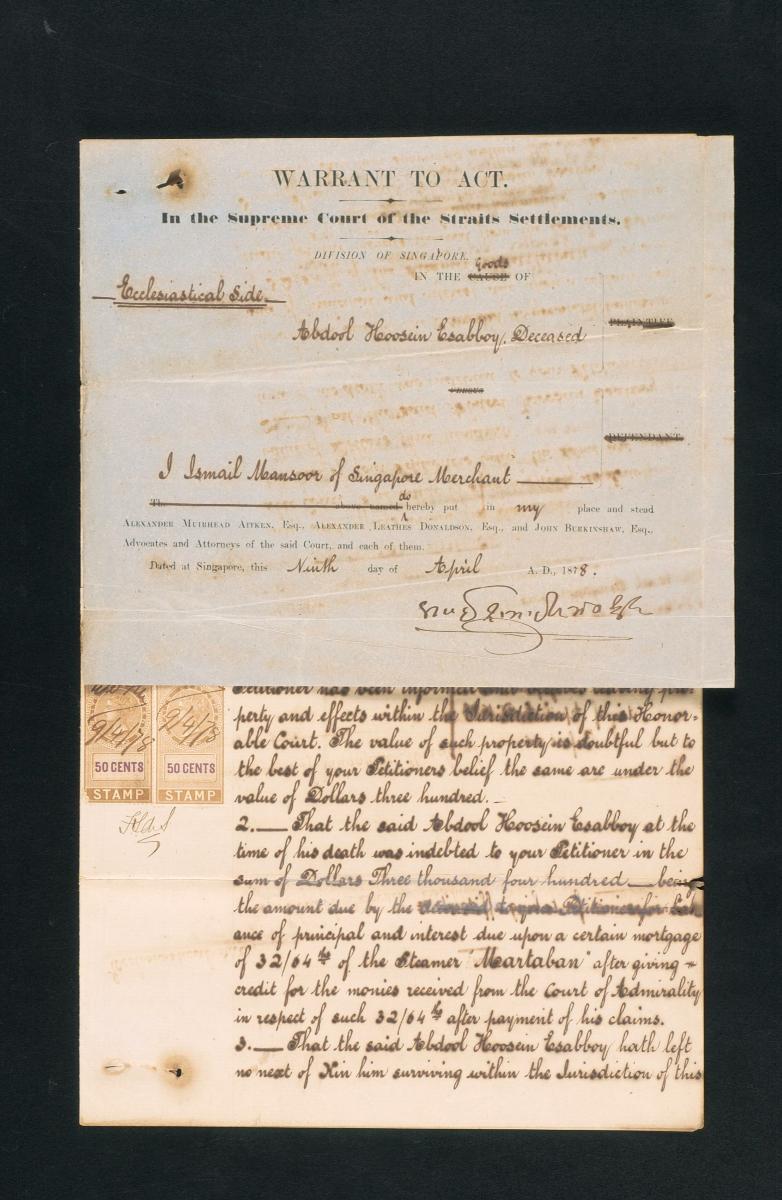 WARRANT TO ACT.
In the Supreme Court of the Straits Settlements.
DIVISION OF SINGAPORE.
Goods
IN THE CAUSE OF
Ecclesiastical Side.
PLAINTIFF
Abdool Hoosein Esabboy, Deceased
VERSUS
DEFENDANT
I Ismail Mansoor of Singapore Merchant
do
Th above-named hereby put in my place and stead
ALEXANDER MUIRHEAD AITKEN, Esq., ALEXANDER LEATHES DONALDSON, Esq., and JOHN BURKINSHAW, Esq.,
Advocates and Attorneys of the said Court, and each of them.
Dated at Singapore, this Ninth day of April A. D., 1878.
Petitioner has been informed and believes leaving pro-
perty and effects within the Jurisdiction of this Honor-
able Court. The value of such property is doubtful but to
the best of your Petitioners belief the same are under the
value of Dollars three hundred.
2. That the said Abdool Hoosein Esabboy at the
time of his death was indebted to your Petitioner in the
sum of Dollars Three thousand four hundred being
the amount due by the deceased to your Petitioner for bal
ance of principal and interest due upon a certain mortgage
of 32/64ths of the Steamer "Martaban" after giving
credit for the monies received from the Court of Admirality
in respect of such 32/64ths after payment of his claims.
3. That the said Abdool Hoosein Esabboy hath left
no next of Kin him surviving within the Jurisdiction of this
9/4/78
9/4/78
50 CENTS
50 CENTS
STAMP
STAMP